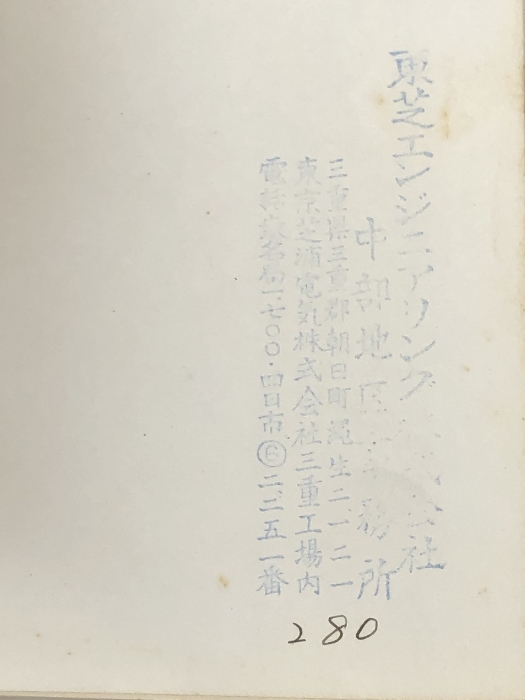 東芝エンジニアリング株式会社
中部地区事務所
三重県三重郡朝日町縄生二、一二一
東京芝浦電気株式会社三重工場内
電話桑名局一七〇〇・四日市⑥二、二五一番
280